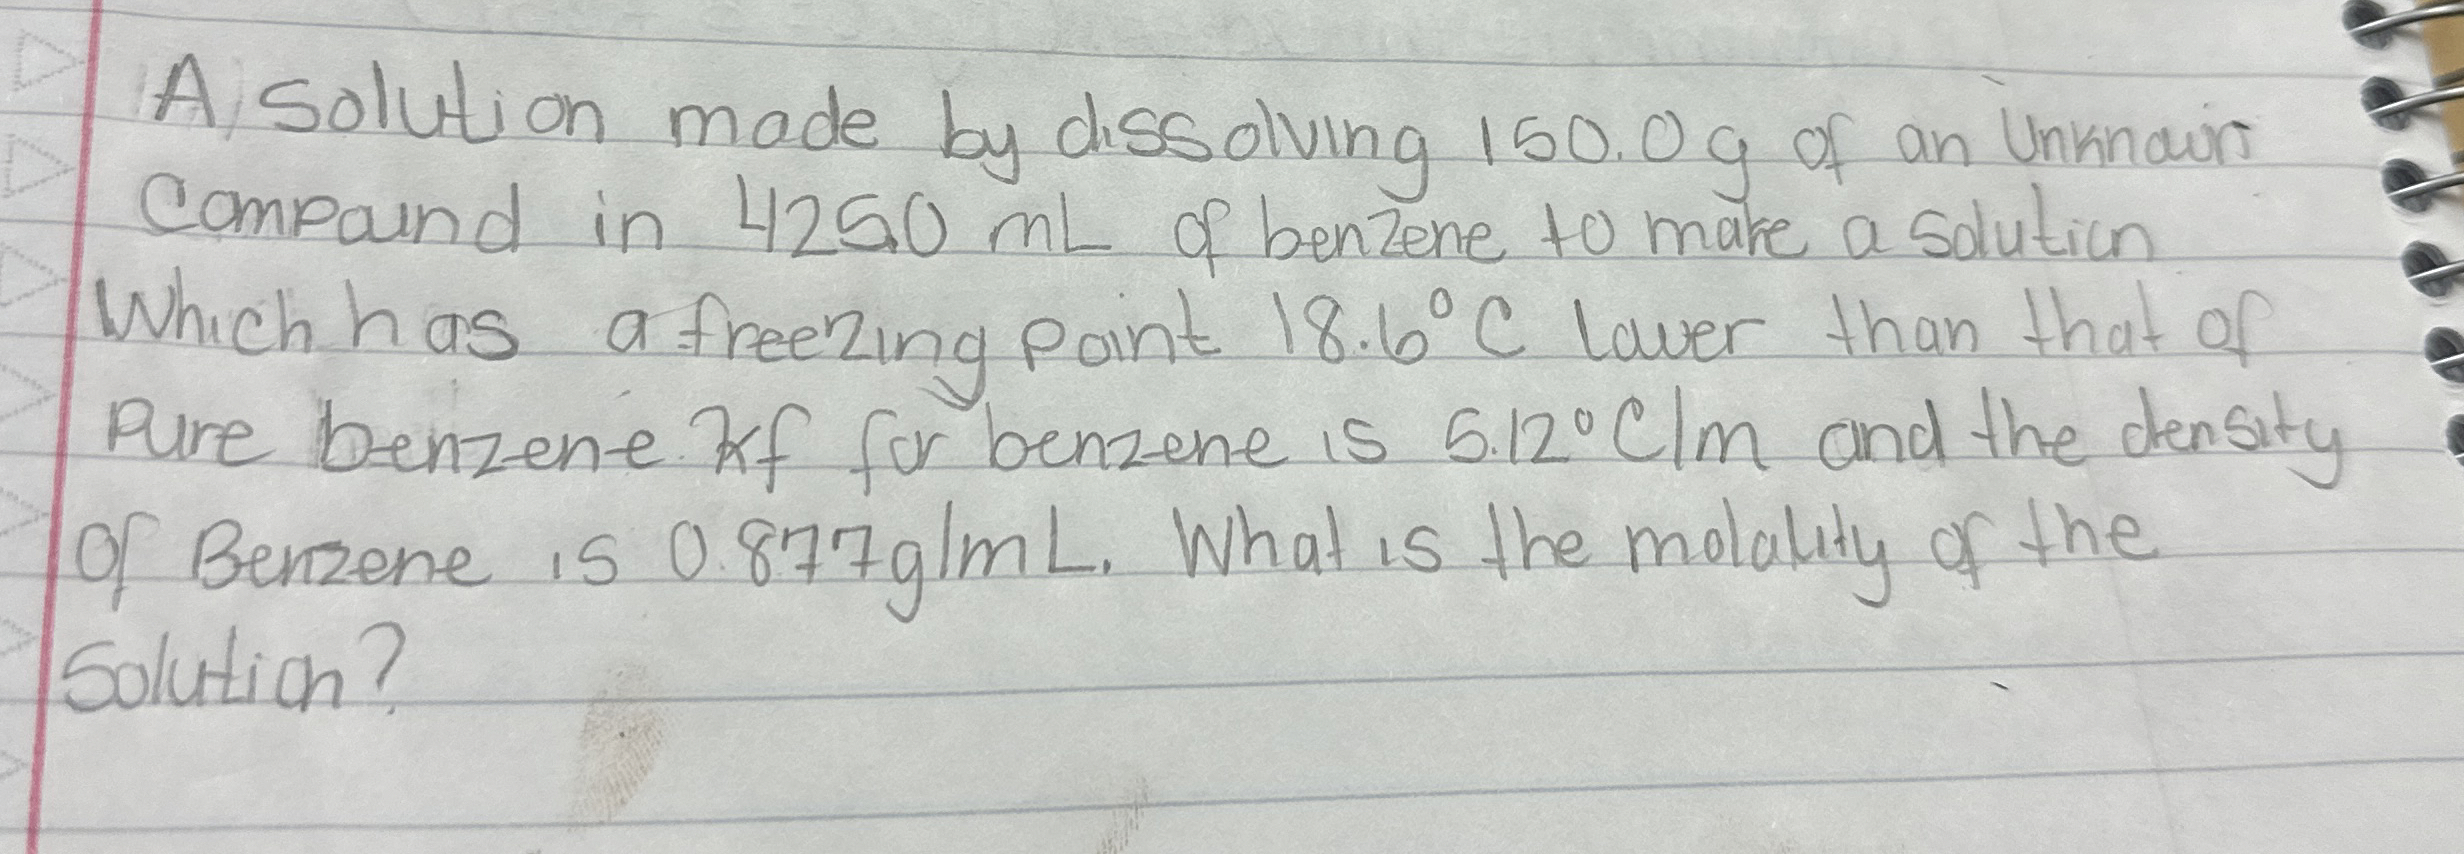 A solution made by dissolving 150.0g of an Unknown
Compound in 425.0 mL of benzene to make a solution
Which has a freezing point 18.6°C lower than that of
Pure benzene. Kf for benzene is 5.12°C/m and the density
Of Benzene is 0.877g/mL. What is the molality of the
Solution?